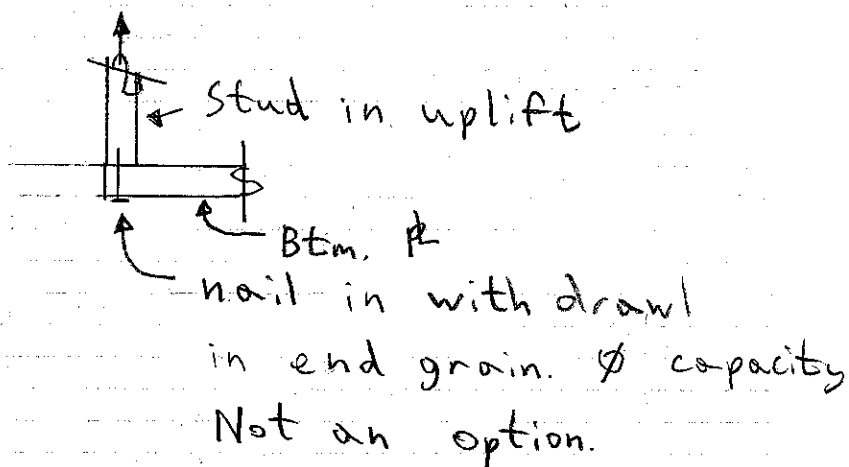 Stud in uplift
Btm. ⅊
nail in withdrawl
in end grain. Ø capacity
Not an option.